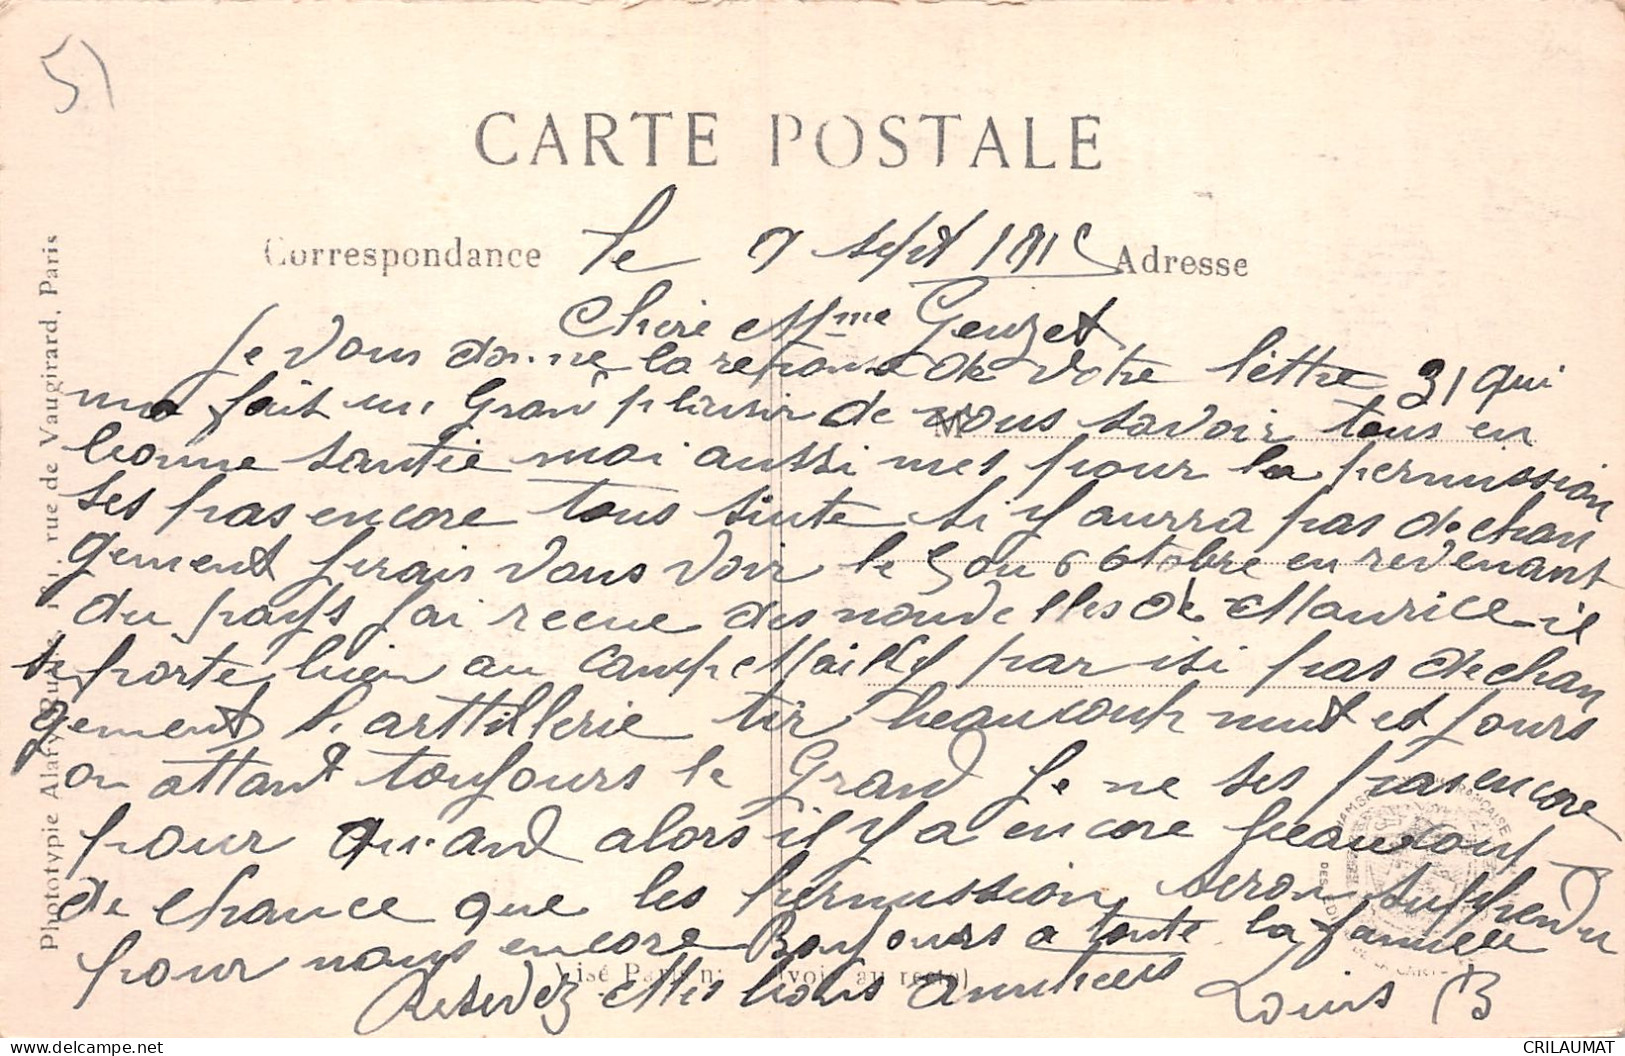 51
CARTE POSTALE
Correspondance
le 7 sept 1915
Adresse
Chère Mme Geuzet
Je vous donne la reponse de votre lèttre 31 qui
ma fait un Grand plaisir de vous savoir tous en
bonne santie moi aussi mes pour la permission
ses pas encore tous suite si y aurra pas de chan
gement jirais vous voir le 5 ou 6 otobre en revenant
du pays jai recue des nouvelles de Maurice il
se porte bien au camp Mailly par isi pas de chan
gement l'arttillerie tir beaucoup nuit et jours
on attant toujours le Grand Je ne ses pas encore
pour quand alors il y a encore beaucoup
de chance que les permission seron suppendu
pour nous encore Bonjours a toute la famiee
Resevez Mes bons amities Louis B
Phototypie Alary rue de Vaugirard, Paris
M
Visé Paris n° (voir au recto)
FRANÇAISE
CRILAUMAT